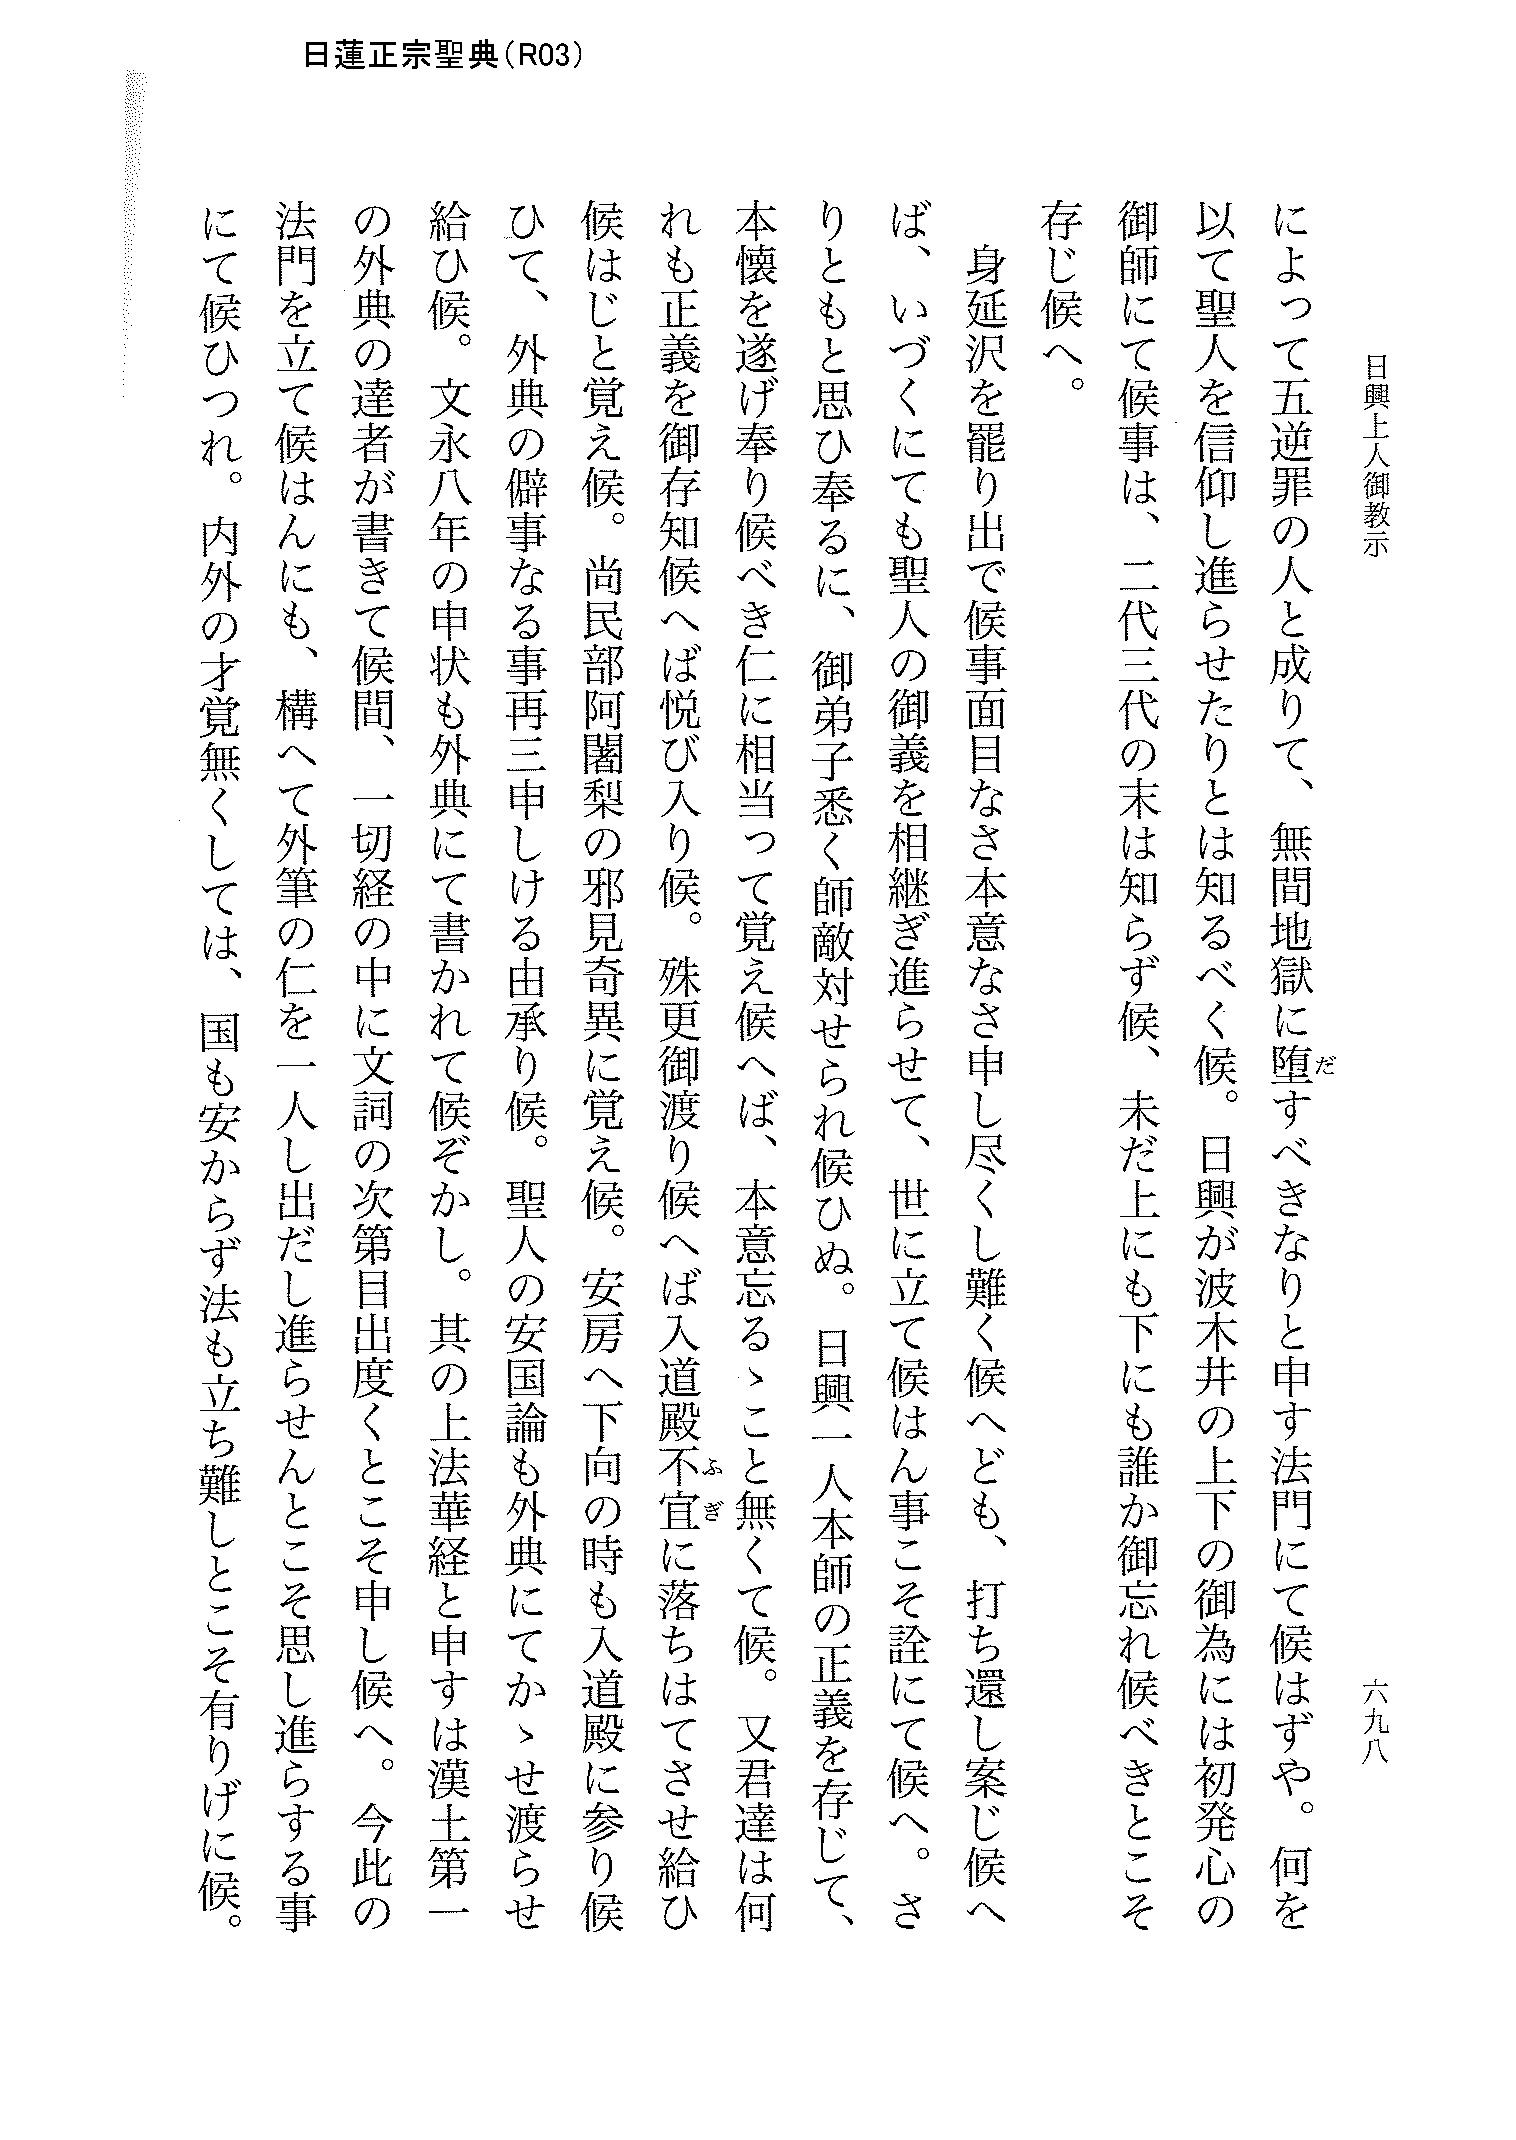 日蓮正宗聖典（R03）
日興上人御教示
六九八
によって五逆罪の人と成りて、無間地獄に堕すべきなりと申す法門にて候はずや。何を
だ
以て聖人を信仰し進らせたりとは知るべく候。日興が波木井の上下の御為には初発心の
御師にて候事は、二代三代の末は知らず候、未だ上にも下にも誰か御忘れ候べきとこそ
存じ候へ。
身延沢を罷り出で候事面目なさ本意なさ申し尽くし難く候へども、打ち還し案じ候へ
ば、いづくにても聖人の御義を相継ぎ進らせて、世に立て候はん事こそ詮にて候へ。さ
りともと思ひ奉るに、御弟子悉く師敵対せられ候ひぬ。日興一人本師の正義を存じて、
本懐を遂げ奉り候べき仁に相当って覚え候へば、本意忘るゝこと無くて候。又君達は何
れも正義を御存知候へば悦び入り候。殊更御渡り候へば入道殿不宜に落ちはてさせ給ひ
ふぎ
候はじと覚え候。尚民部阿闍梨の邪見奇異に覚え候。安房へ下向の時も入道殿に参り候
ひて、外典の僻事なる事再三申しける由承り候。聖人の安国論も外典にてかゝせ渡らせ
給ひ候。文永八年の申状も外典にて書かれて候ぞかし。其の上法華経と申すは漢土第一
の外典の達者が書きて候間、一切経の中に文詞の次第目出度くとこそ申し候へ。今此の
法門を立て候はんにも、構へて外筆の仁を一人し出だし進らせんとこそ思し進らする事
にて候ひつれ。内外の才覚無くしては、国も安からず法も立ち難しとこそ有りげに候。